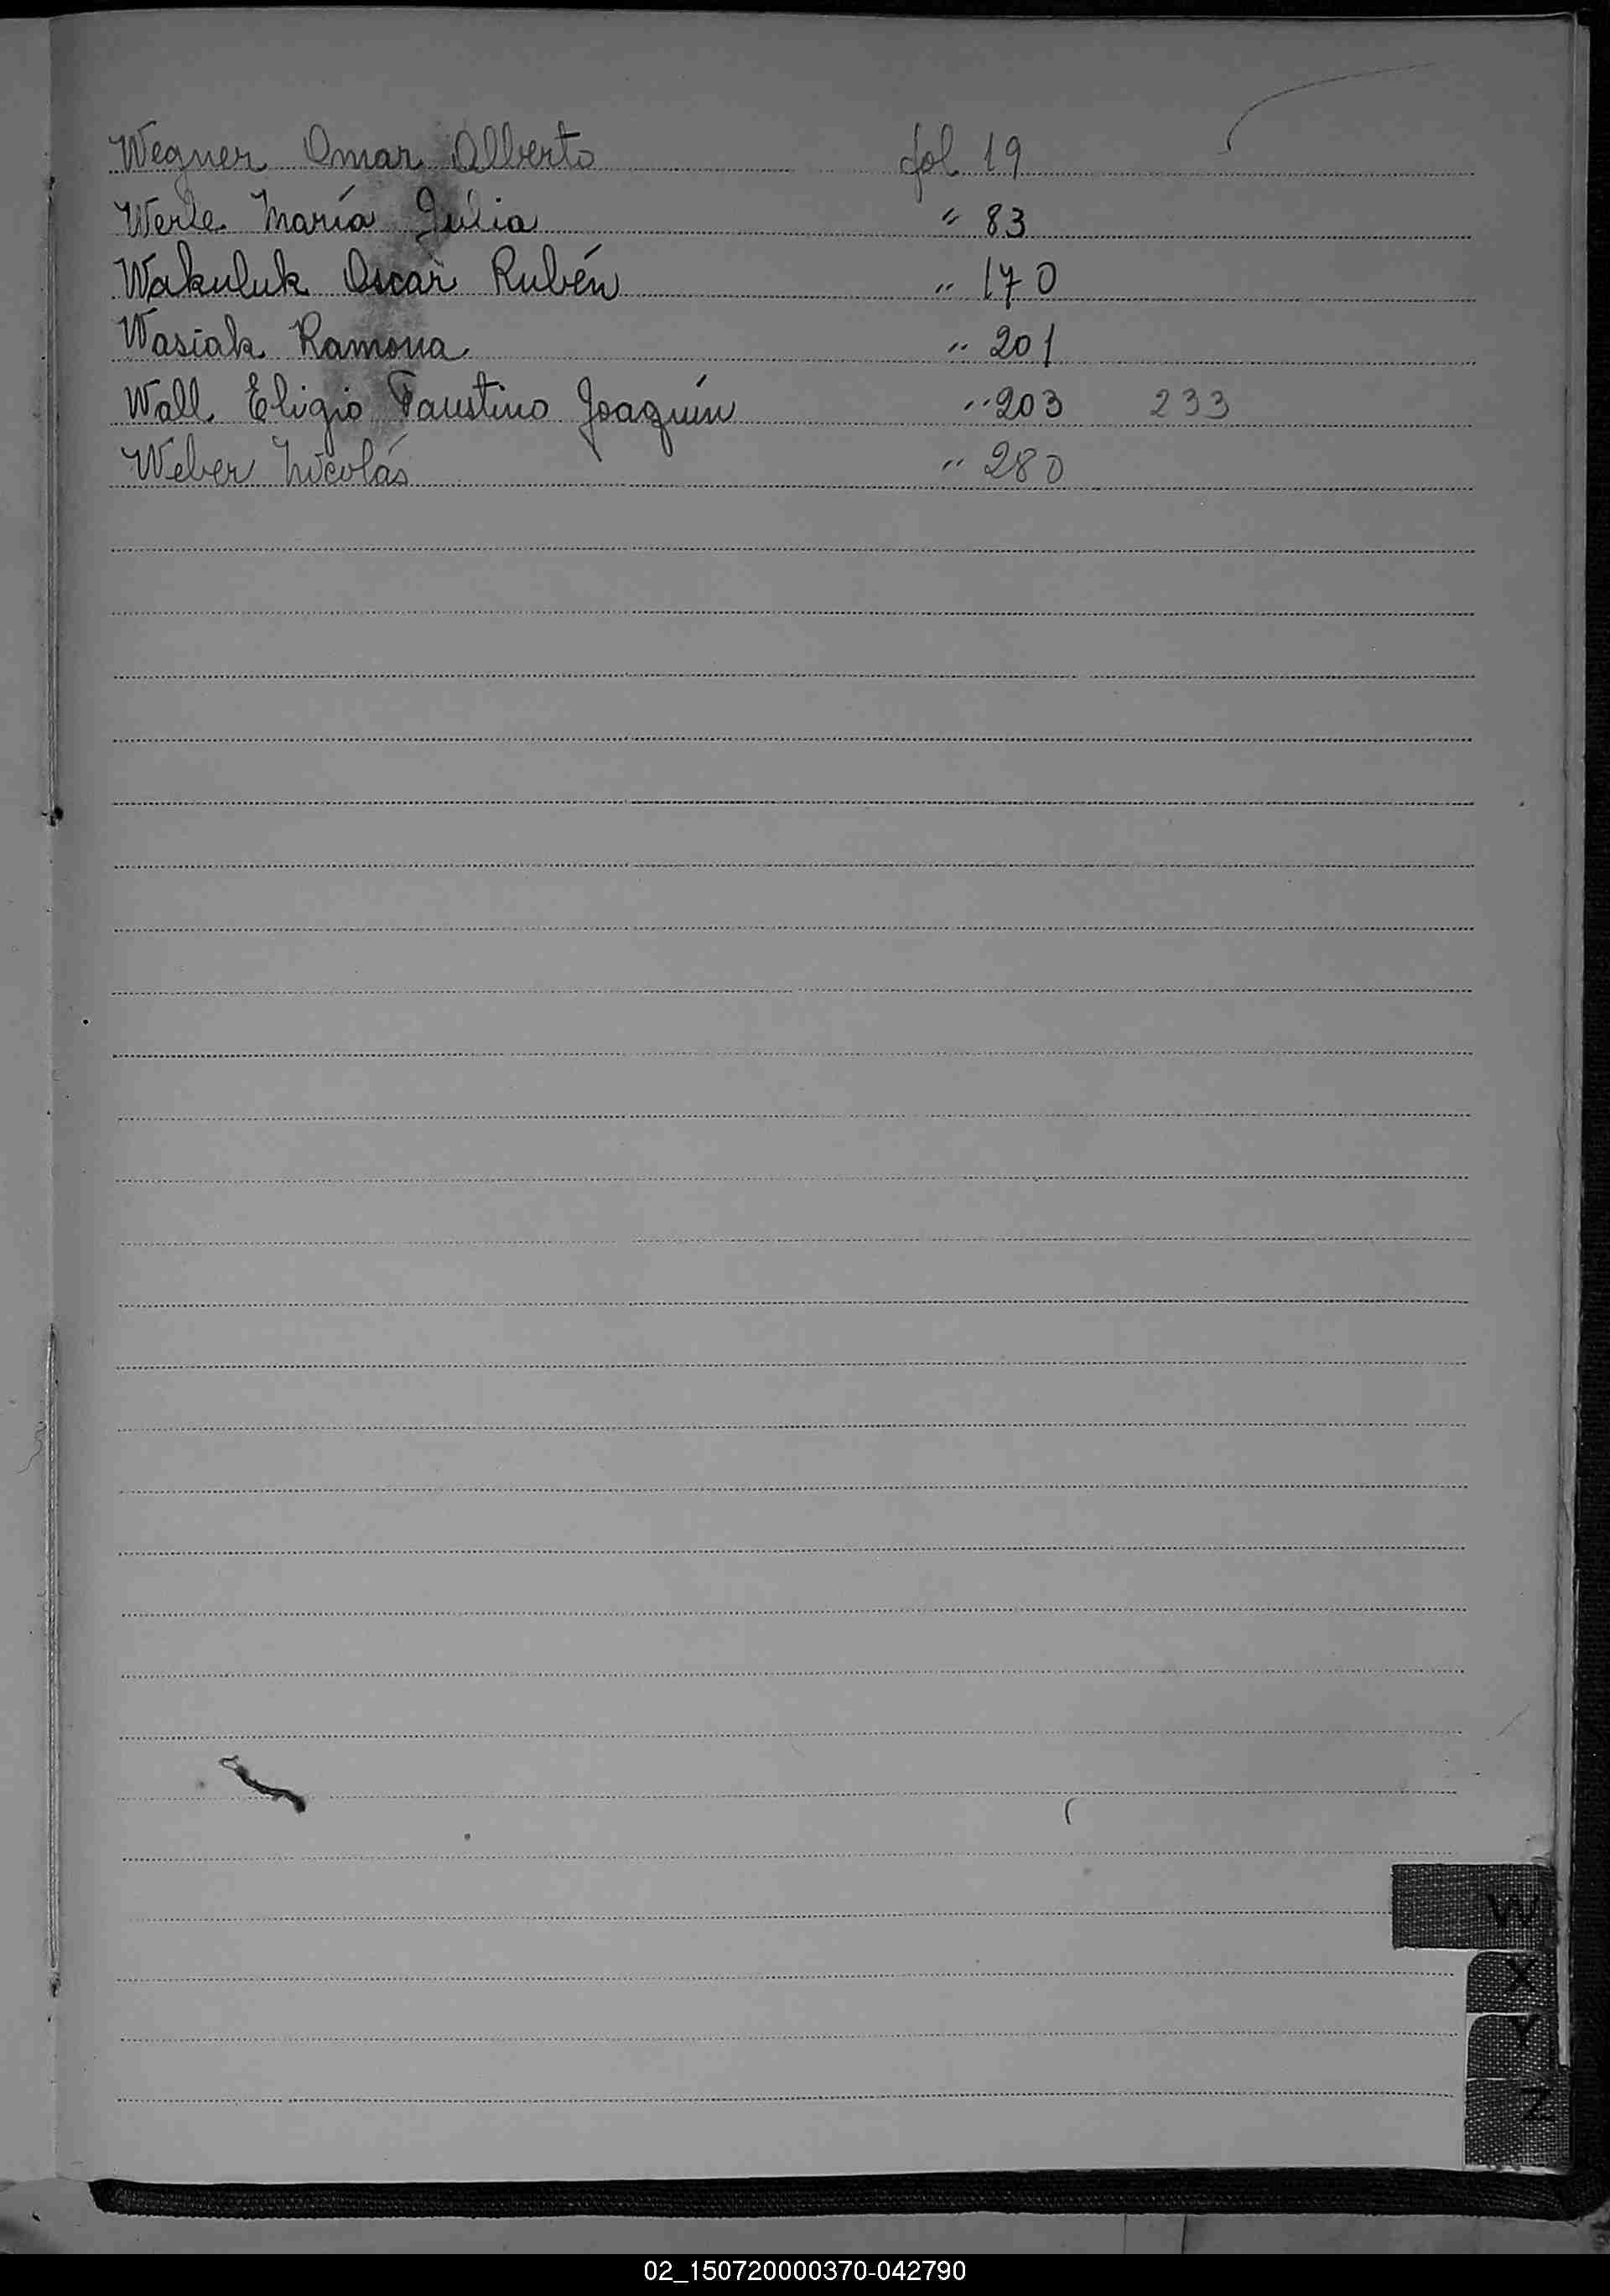 Wegner Omar Alberto fol 19
Werle María Julia " 83
Wakuluk Oscar Rubén " 170
Wasiak Ramona " 201
Wall Eligio Faustino Joaquín " 203 233
Weber Nicolás " 280
W
X
Y
Z
02_150720000370-042790